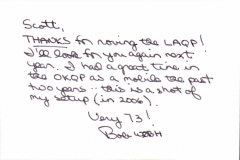 Scott,
THANKS for roving the LAQP!
I'll look for you again next
year. I had a great time in
the OKQP as a mobile the past
two years... this is a shot of
my setup (in 2006).
Very 73!
Bob